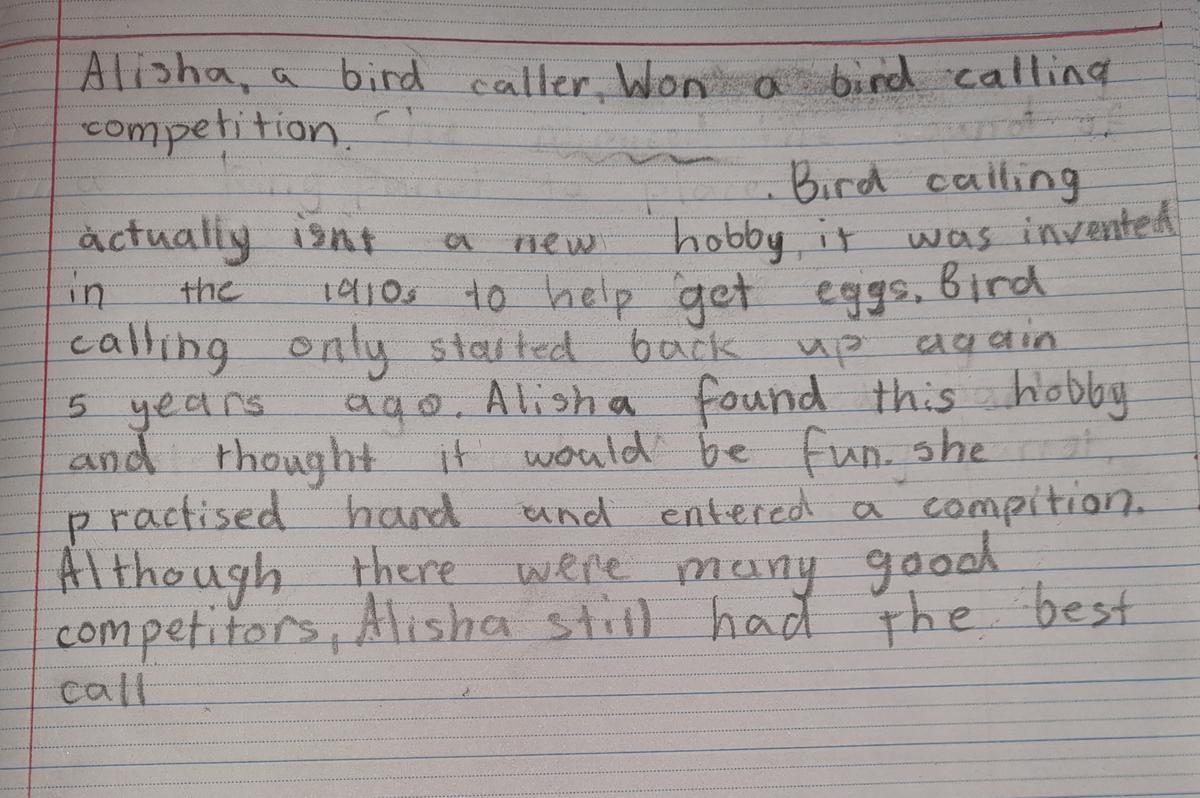 Alisha, a bird caller, Won a bird calling
competition.
. Bird calling
actually isnt a new hobby, it was invented
in the 1910s to help get eggs. Bird
calling only started back up again
5 years ago. Alisha found this hobby
and thought it would be fun. she
practised hard and entered a compition.
Although there were many good
competitors, Alisha still had the best
call